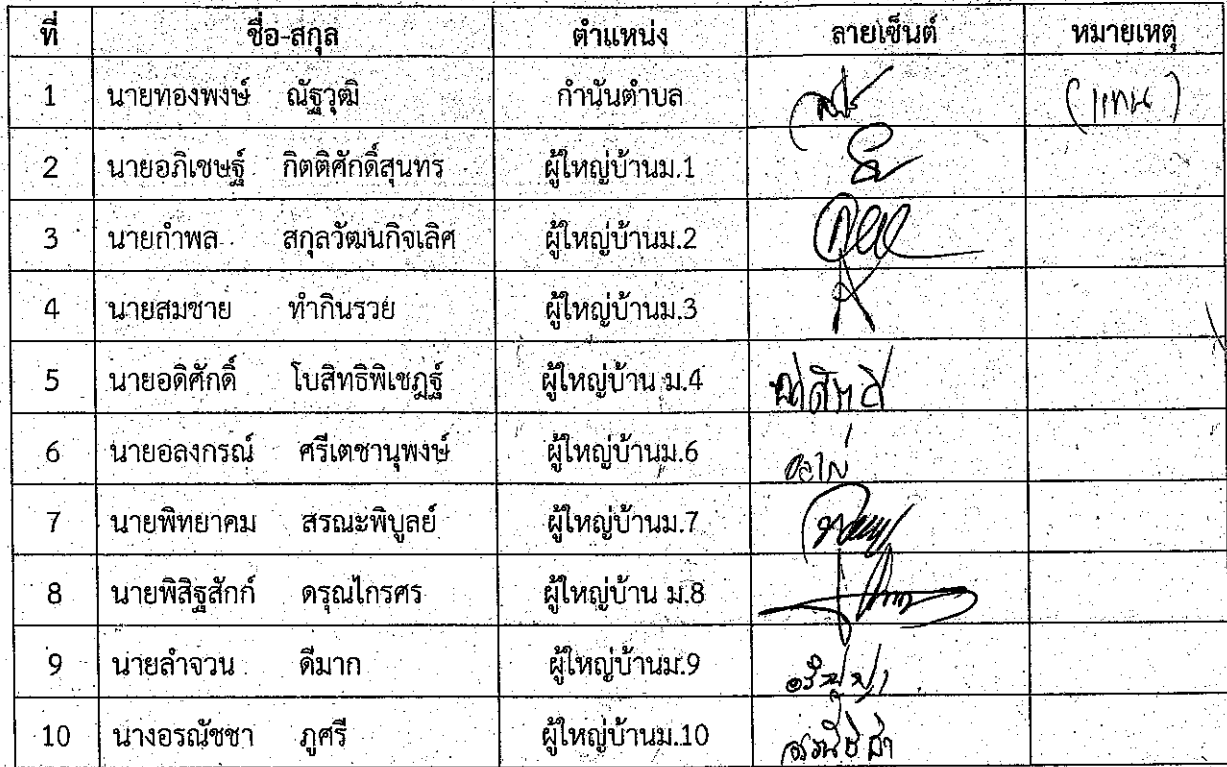 ที่ ชื่อ-สกุล ตำแหน่ง ลายเซ็นต์ หมายเหตุ
1 นายทองพงษ์ ณัฐวุฒิ กำนันตำบล (แทน)
2 นายอภิเชษฐ์ กิตติศักดิ์สุนทร ผู้ใหญ่บ้านม.1
3 นายกำพล สกุลวัฒนกิจเลิศ ผู้ใหญ่บ้านม.2
4 นายสมชาย ทำกินรวย ผู้ใหญ่บ้านม.3
5 นายอดิศักดิ์ โบสิทธิพิเชฎฐ์ ผู้ใหญ่บ้าน ม.4
6 นายอลงกรณ์ ศรีเตชานุพงษ์ ผู้ใหญ่บ้านม.6
7 นายพิทยาคม สรณะพิบูลย์ ผู้ใหญ่บ้านม.7
8 นายพิสิฐสักก์ ดรุณไกรศร ผู้ใหญ่บ้าน ม.8
9 นายลำจวน ดีมาก ผู้ใหญ่บ้านม.9
10 นางอรณัชชา ภูศรี ผู้ใหญ่บ้านม.10